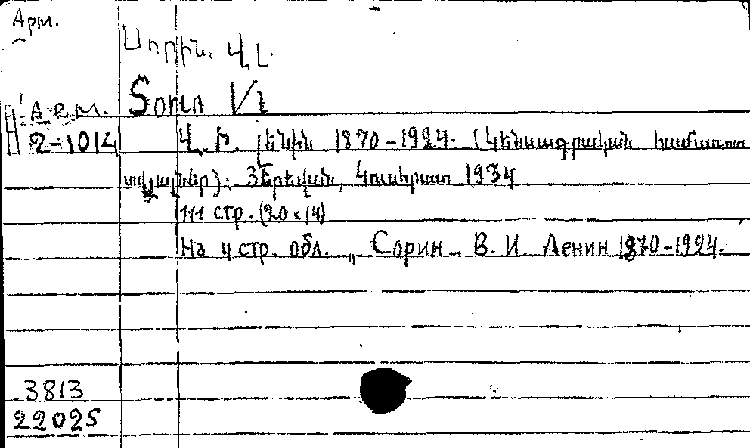 Арм.
Սորին. Վ. Լ.
Sorin Vl
A.R.M.
2-1014
Վ. Ի. Լենին 1870-1924. (Կենսագրական համառոտ
տվյալներ): Երեվան, Կուսհրատ 1934
111 стр. (20x14)
На 4 стр. обл. „Сорин В. И. Ленин 1870-1924.
3813
22025